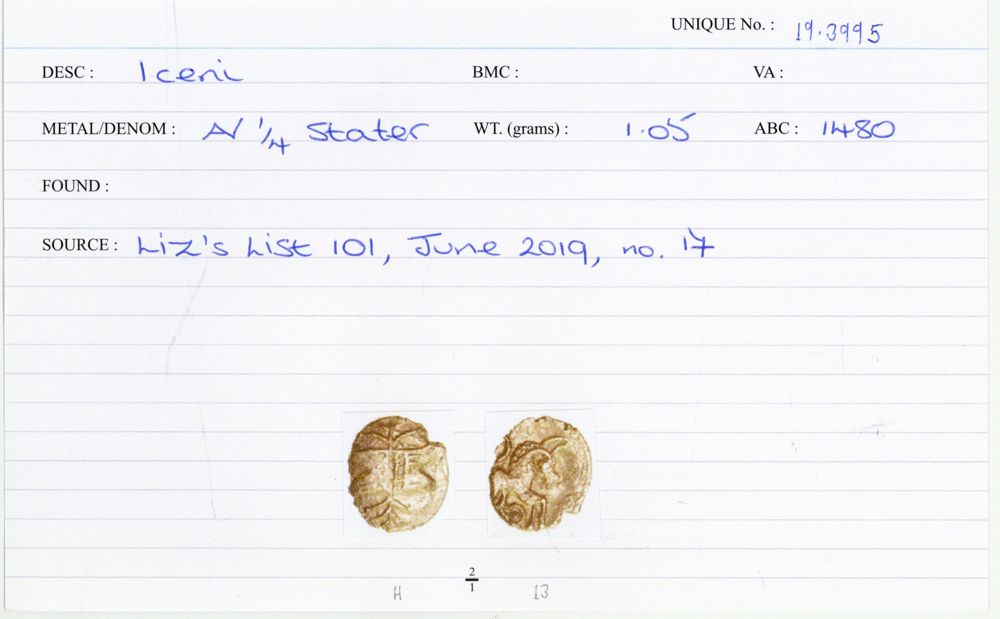 UNIQUE No. : 19.3995
DESC : Iceni BMC : VA :
METAL/DENOM : AV 1/4 Stater WT. (grams) : 1.05 ABC : 1480
FOUND :
SOURCE : Liz's List 101, June 2019, no. 17
2
1
H 13